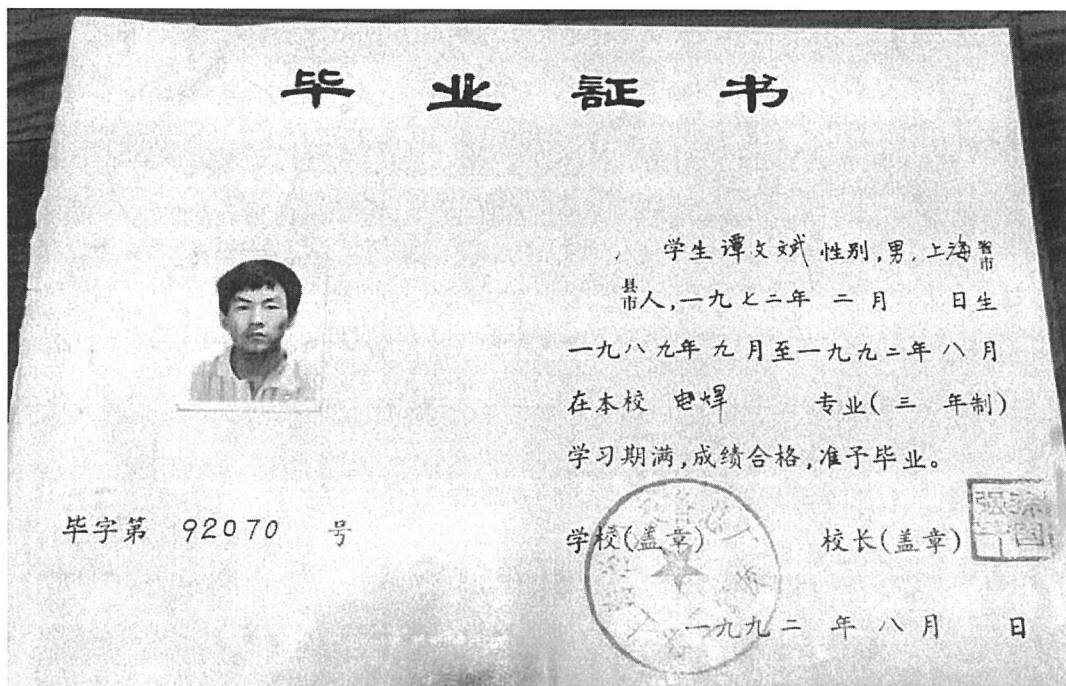 毕业証书
学生 谭文斌 性别,男,上海省市
县市人,一九七二年 二月 日生
一九八九年九月至一九九二年八月
在本校 电焊 专业( 三 年制)
学习期满,成绩合格,准予毕业。
毕字第 92070 号
学校(盖章) 校长(盖章)
一九九二 年 八 月 日